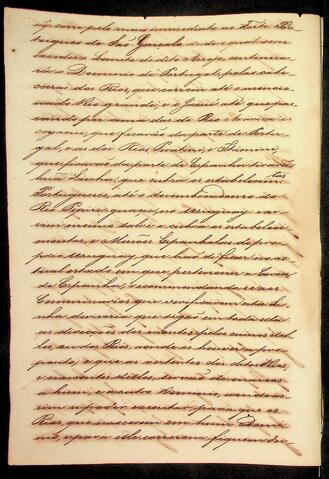 corre pelo mais immediato ao Forte Por-
tuguez de São Gonçalo, desde o qual, sem
exceder o Limite do dito Arroyo, continua-
rá o Dominio de Portugal, pelas cabe-
ceiras dos Rios, que correm até o mencio-
nado Rio grande, e o Jacui, até que pas-
sando por cima das do Rio Ararica, e
Coyacui, que ficarão da parte de Portu-
gal, e as dos Rios Piratini, e Ibimini,
que ficarão da parte de Espanha, se tirará
huã Linha, que cubra os estabelecimtos
Portuguezes, até o desembocadouro do
Rio Pepiri-guazu, no Uruguay; e as-
sim mesmo salve, e cubra os estabeleci-
mentos, e Missões Espanholas do pro-
prio Uruguay, que hão de ficar no ac-
tual estado em que pertencem a Coroa
de Espanha; recommendando-se aos
Commissarios, que verificarem esta Li-
nha divisoria, que sigão em toda ella
as direcções dos montes pelos cumes del-
les, ou dos Rios, onde os houver a pro-
posito, e que as vertentes dos ditos Rios,
e nascentes delles, sirvão de marcos
a hum, e outro Dominio, onde as-
sim se poder executar, para que os
Rios, que nascerem em hum Domi-
nio, e para elle correrem, fiquem des-